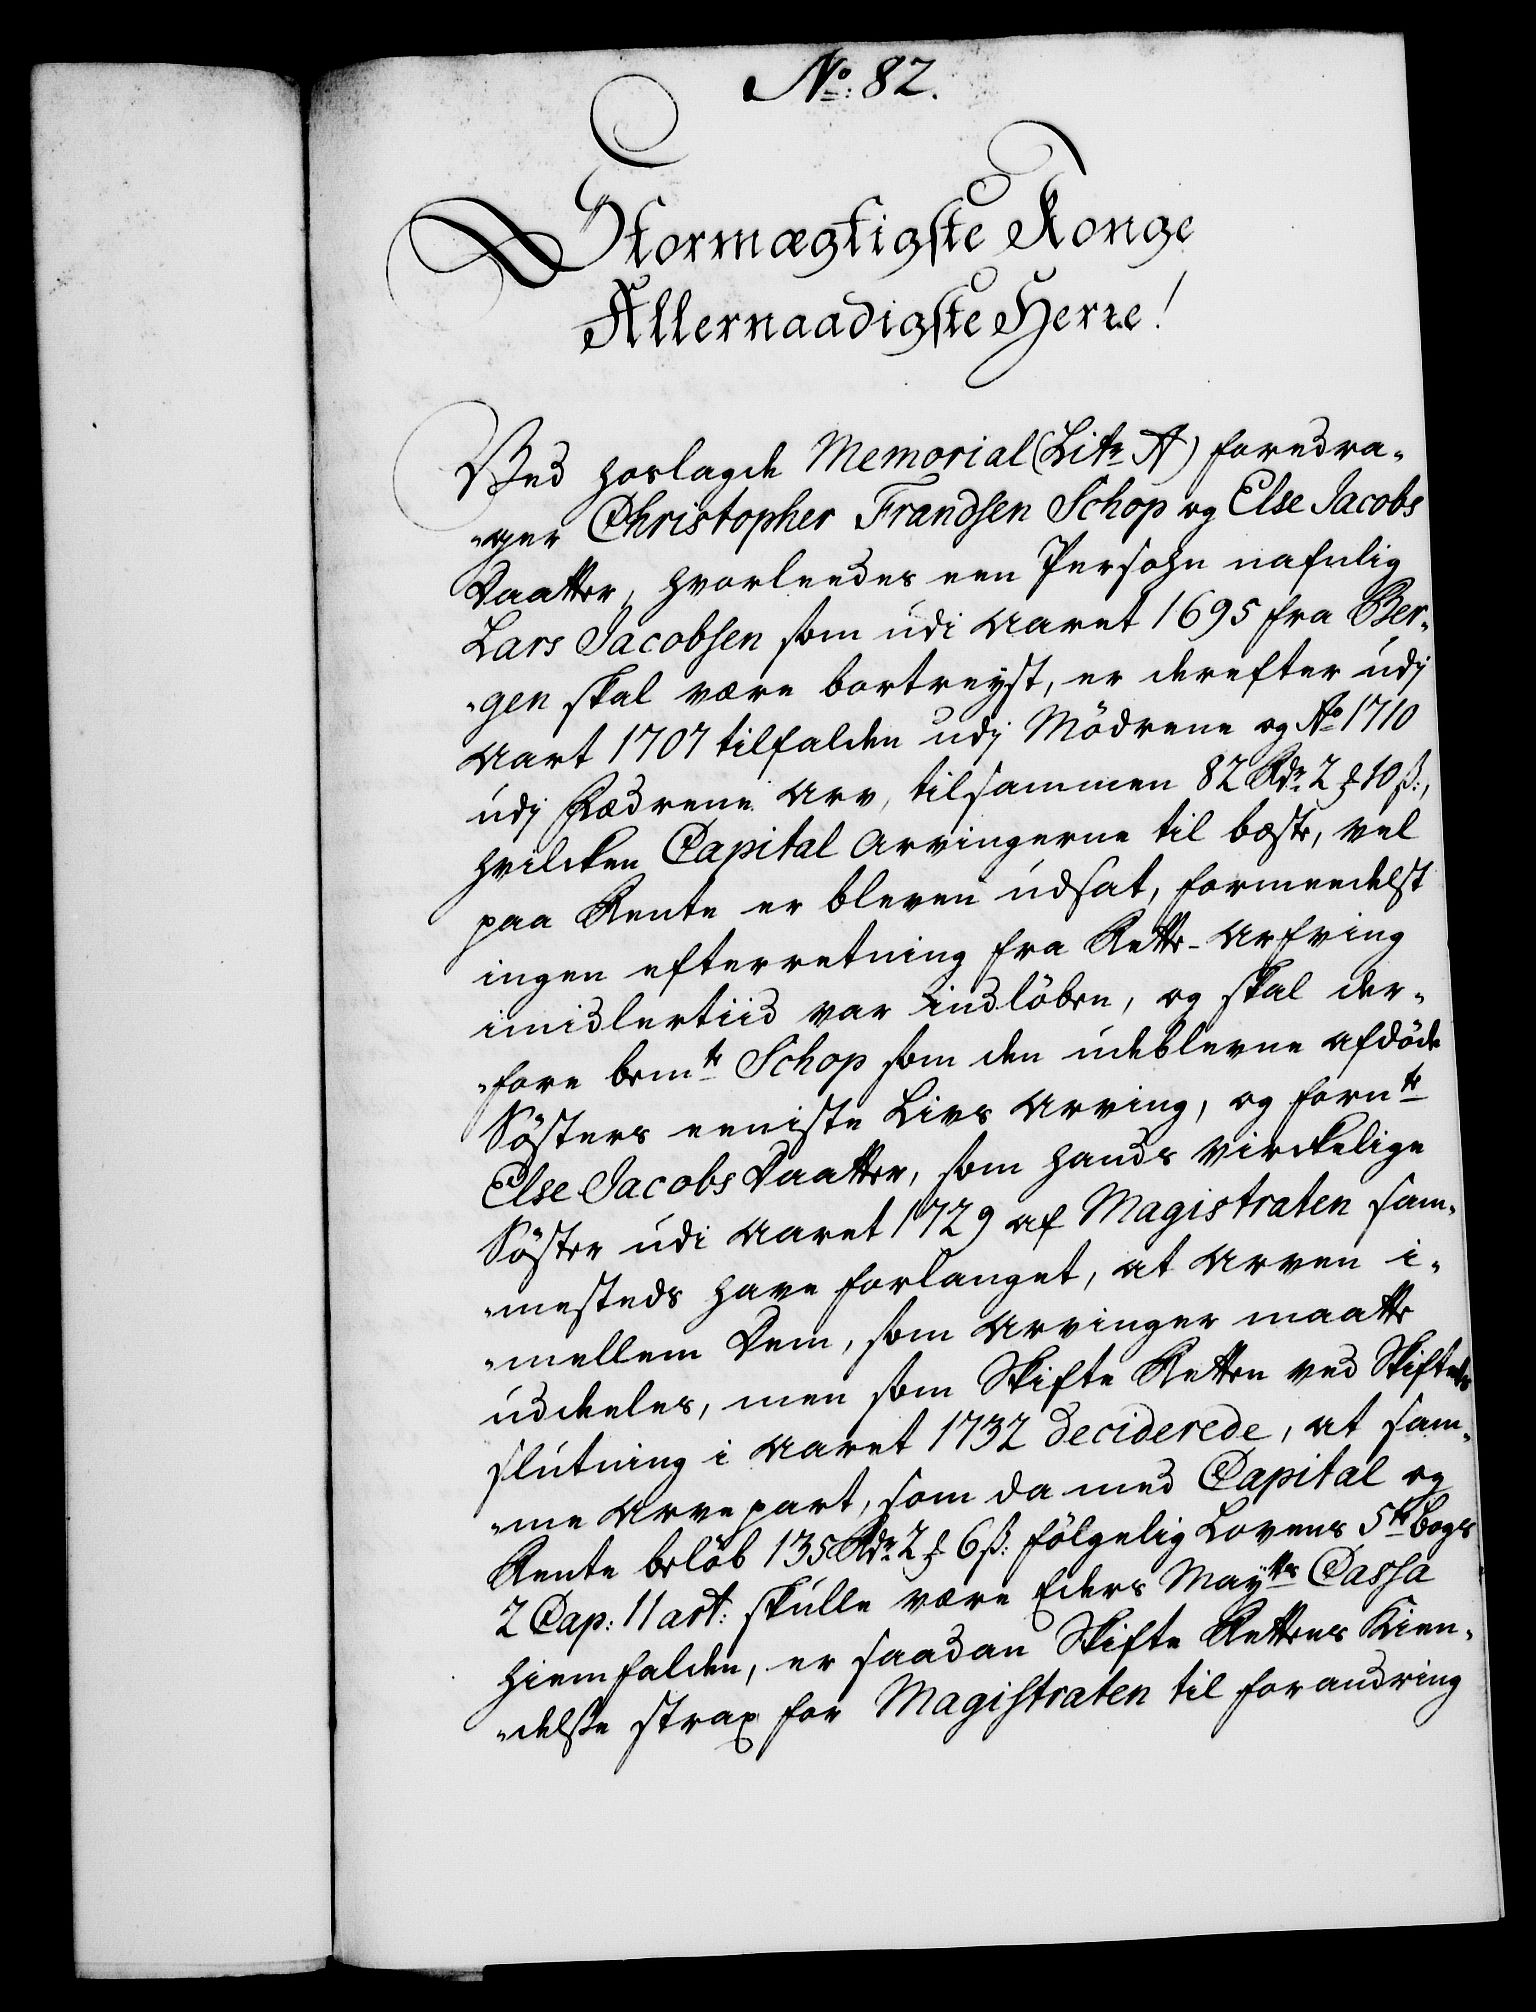 No: 82.
Stormægtigste Konge
Allernaadigste Herre!
Ved hoslagde Memorial (Litr A) foredra-
-ger Christopher Frandsen Schop og Else Jacobs
Daatter, hvorleedes een Persohn nafnlig
Lars Jacobsen som udi Aaret 1695 fra Ber-
-gen skal være bortreyst, er derefter udj
Aart 1707 tilfalden udj Mödrene og Ao 1710
udj Fædrene Arv, tilsammen 82 Rdr 2 ℔ 10 ß:,
hvilcken Capital Arvingerne til bæste, vel
paa Rente er bleven udsat, formeedelst
ingen efterretning fra Rette-Arfving
imidlertiid var indlöben, og skal der-
-fore bemte Schop som den udeblevne afdöde
Sösters eeniste Livs Arving, og fornte
Else Jacobs Daatter, som hands virckelige
Söster udi Aaret 1729 af Magistraten sam-
-mesteds have forlanget, at Arven i-
-mellem Dem, som Arvinger maatte
uddeeles, men som Skifte Retten ved Skiftets
slutning i Aaret 1732 deciderede, at sam-
-me Arvepart, som da med Capital og
Rente belöb 135 Rdr 2 ℔ 6 ß: fölgelig Lovens 5te bogs
2 Cap: 11 art: skulle være Eders Mayts Cassa
hiemfalden, er saadan Skifte Rettens Kien-
-delse strax for Magistraten til forandring